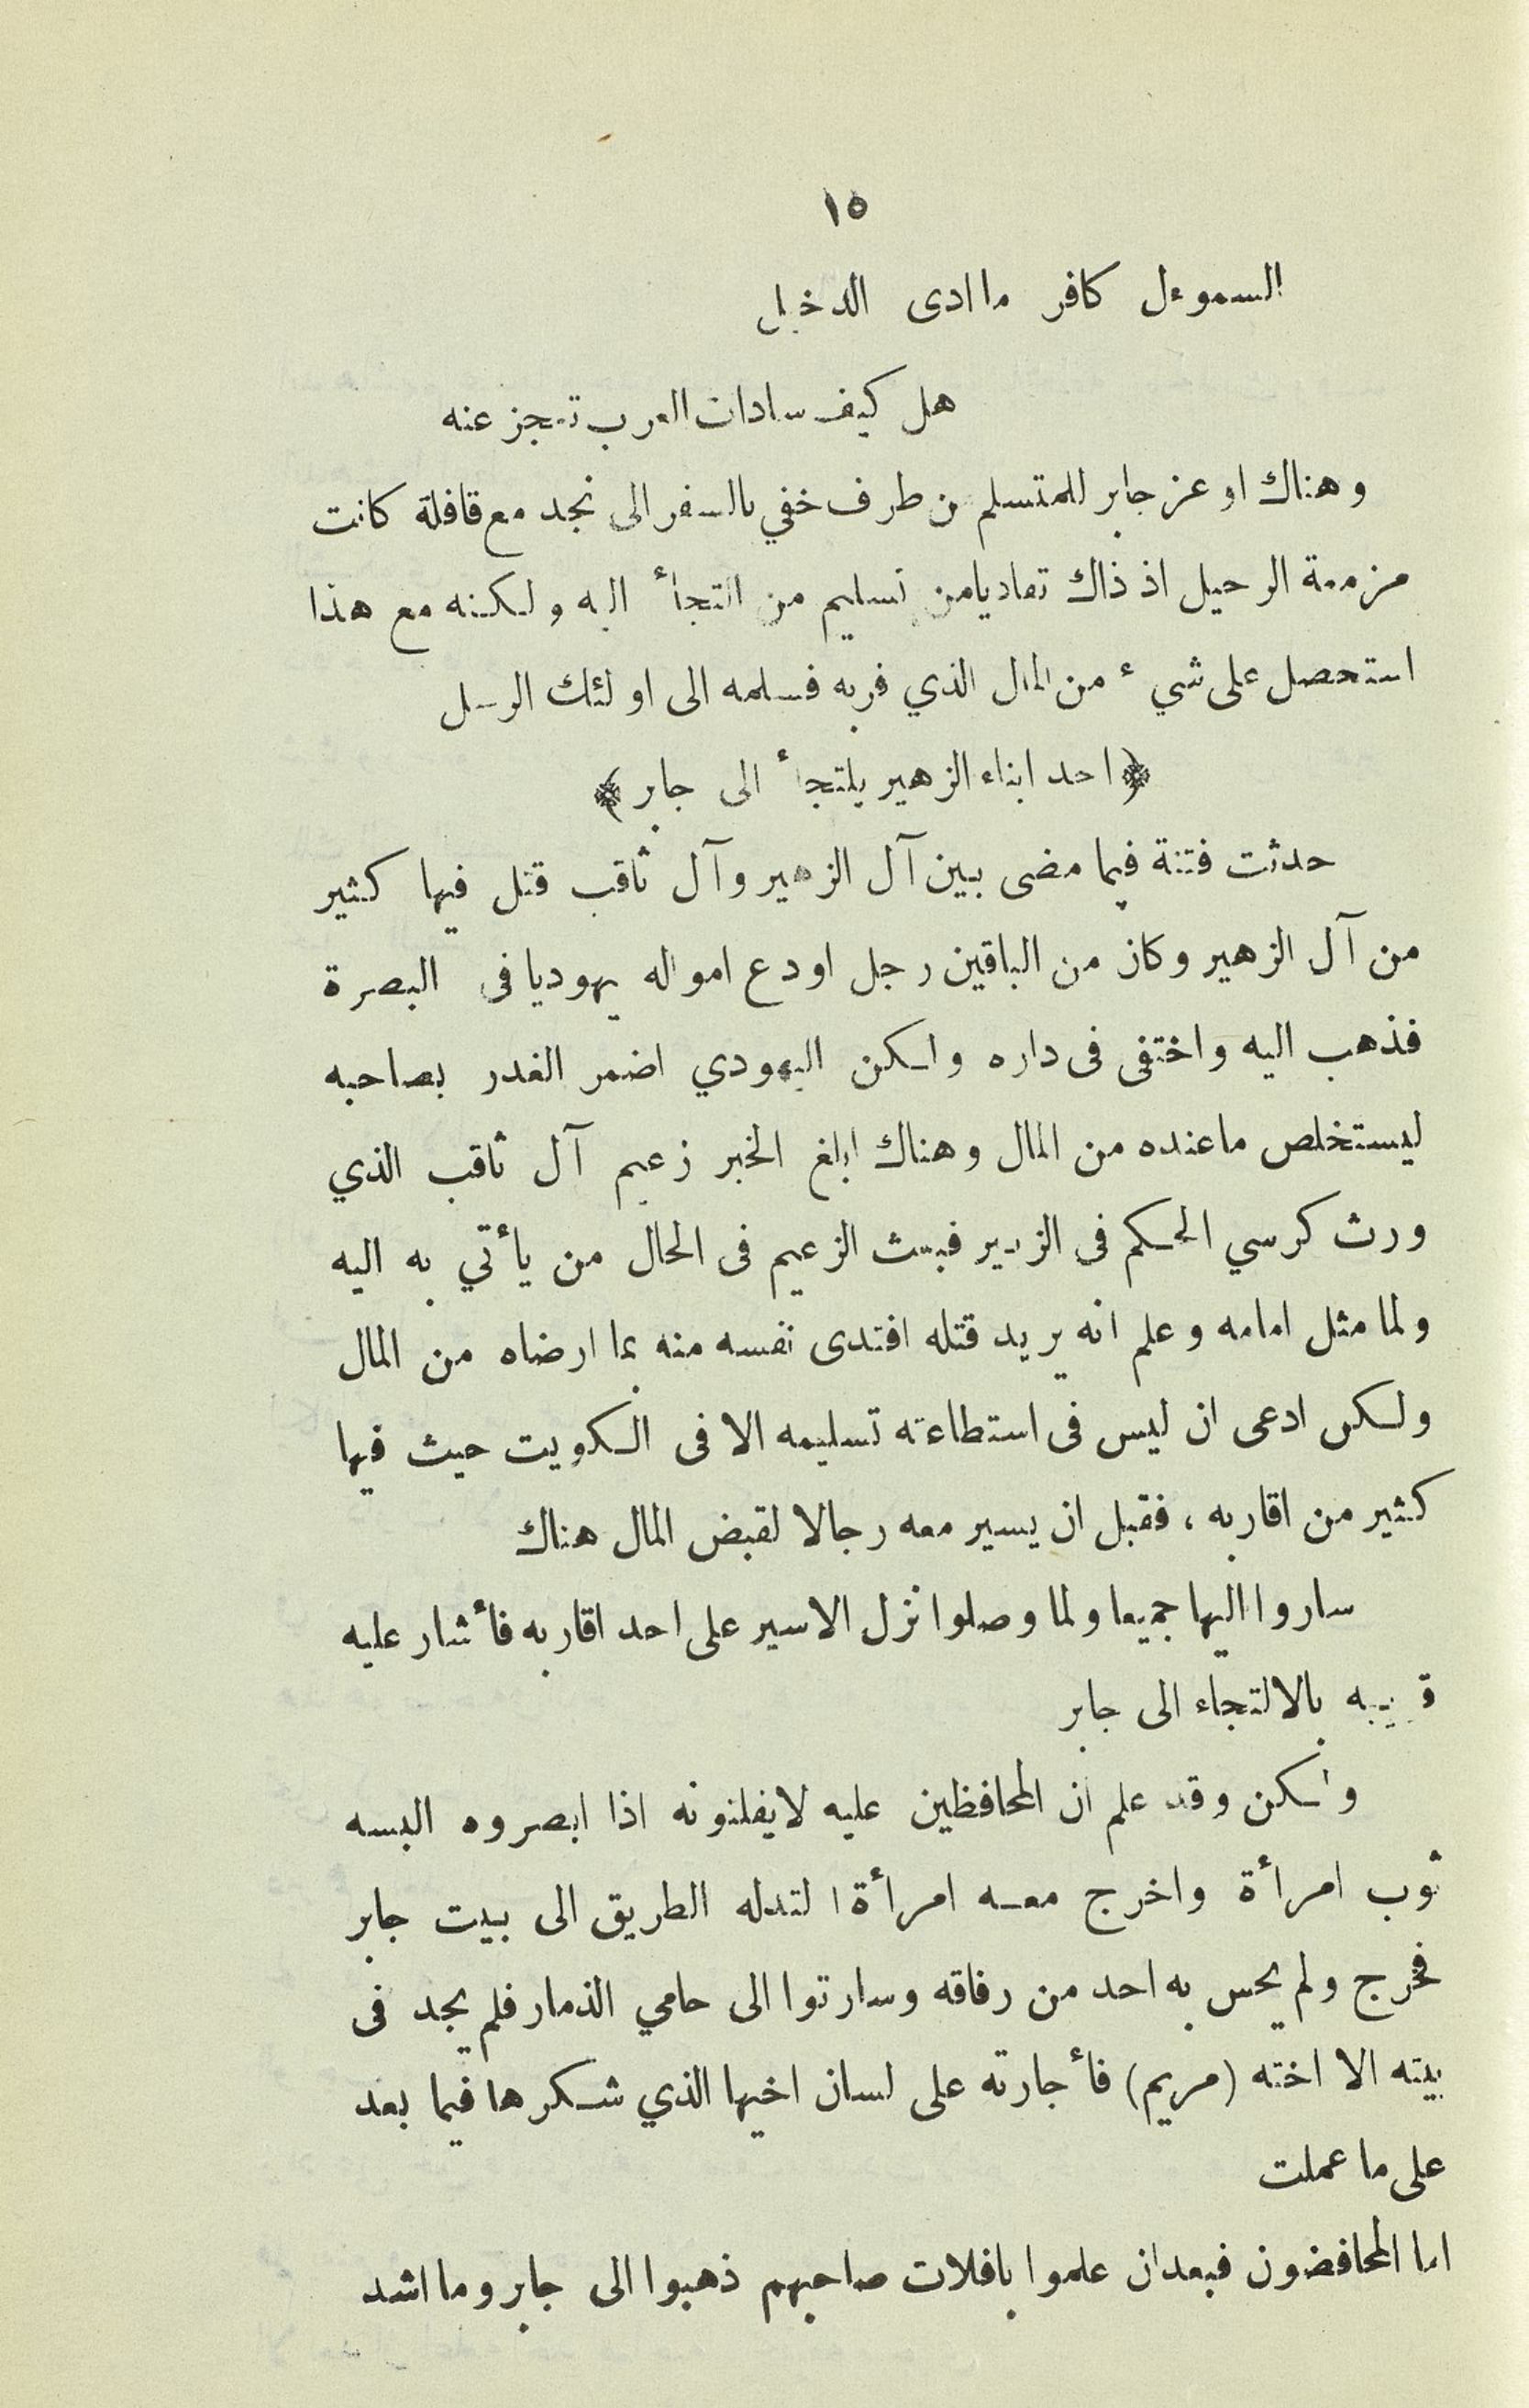 ١٥
السموءل كافر ما ادى الدخيل
هل كيف سادات العرب تعجز عنه
وهناك اوعز جابر للمتسلم من طرف خفي بالسفر الى نجد مع قافلة كانت
مزمعة الرحيل اذ ذاك تفاديا من تسليم من التجأ اليه ولكنه مع هذا
استحصل على شيء من المال الذي فر به فسلمه الى اولئك الرسل
﴿احد ابناء الزهير يلتجأ الى جابر﴾
حدثت فتنة فيما مضى بين آل الزهير وآل ثاقب قتل فيها كثير
من آل الزهير وكان من الباقين رجل اودع امواله يهوديا في البصرة
فذهب اليه واختفى في داره ولكن اليهودي اضمر الغدر بصاحبه
ليستخلص ما عنده من المال وهناك ابلغ الخبر زعيم آل ثاقب الذي
ورث كرسي الحكم في الزبير فبعث الزعيم في الحال من يأتي به اليه
ولما مثل امامه وعلم انه يريد قتله افتدى نفسه منه بما ارضاه من المال
ولكن ادعى ان ليس في استطاعته تسليمه الا في الكويت حيث فيها
كثير من اقاربه ، فقبل ان يسير معه رجالا لقبض المال هناك
ساروا اليها جميعا ولما وصلوا نزل الاسير على احد اقاربه فأشار عليه
قريبه بالالتجاء الى جابر
ولكن وقد علم ان المحافظين عليه لا يفلتونه اذا ابصروه البسه
ثوب امرأة واخرج معه امرأة ا لتدله الطريق الى بيت جابر
فخرج ولم يحس به احد من رفاقه وسارتوا الى حامي الذمار فلم يجد في
بيته الا اخته (مريم) فأجارته على لسان اخيها الذي شكرها فيما بعد
على ما عملت
اما المحافضون فبعد ان علموا بافلات صاحبهم ذهبوا الى جابر وما اشد